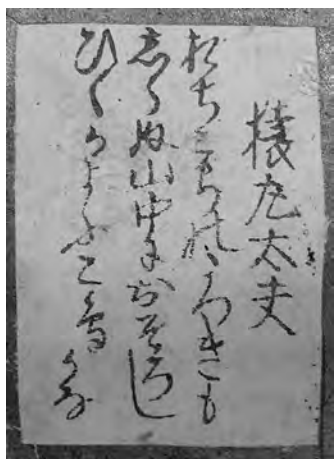 猿丸太夫
おちこちのたつきも
しらぬ山中におほつか
なくもよふこ鳥かな